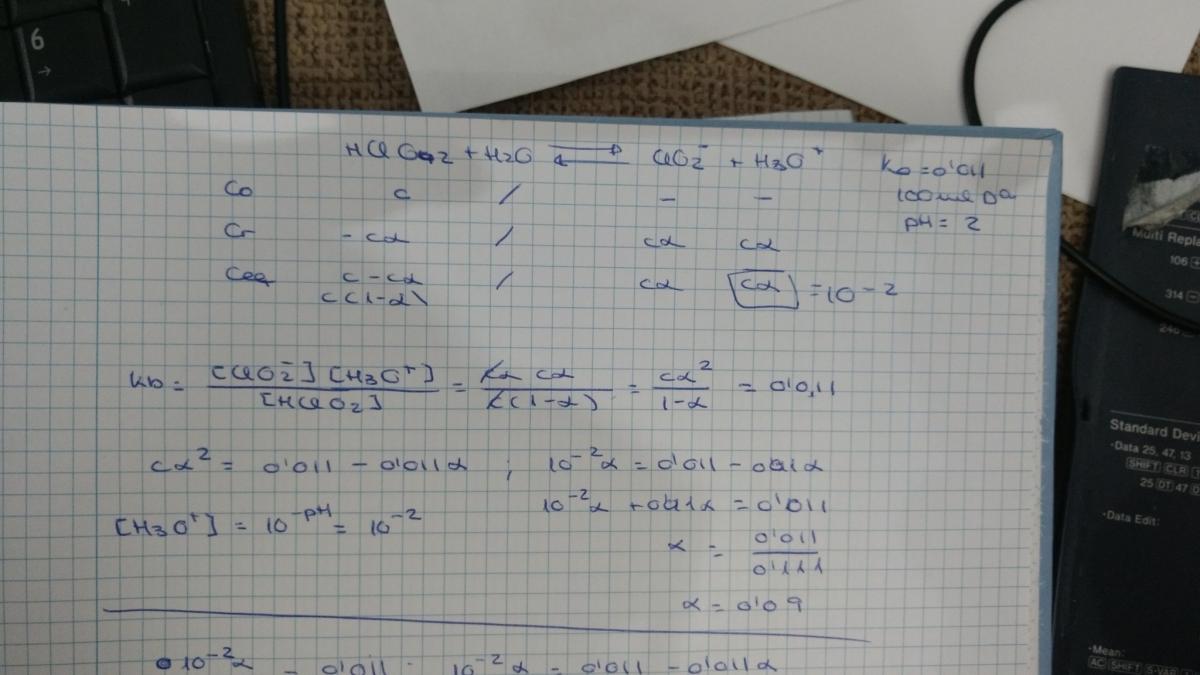 6
HClO2 + H2O ⇌ ClO2⁻ + H3O⁺
Ka = 0'011
C0 c / - -
pH = 2
Cr - cα / cα cα
Ceq c - cα / cα cα = 10⁻²
c(1-α)
[ClO2⁻] [H3O⁺] / [HClO2] = cα cα / c(1-α) = cα² / 1-α = 0'0,11
cα² = 0'011 - 0'011α ; 10⁻²α = 0'011 - 0'11α
10⁻²α + 0'11α = 0'011
[H3O⁺] = 10^-pH = 10⁻²
α = 0'011 / 0'111
α = 0'09
10⁻²α = 0'011 · 10⁻²α = 0'011 - 0'011α
Multi Repla
106
314
246
Standard Devi
·Data 25, 47, 13
SHIFT CLR
25 DT 47
·Data Edit:
·Mean:
AC SHIFT S-VAR